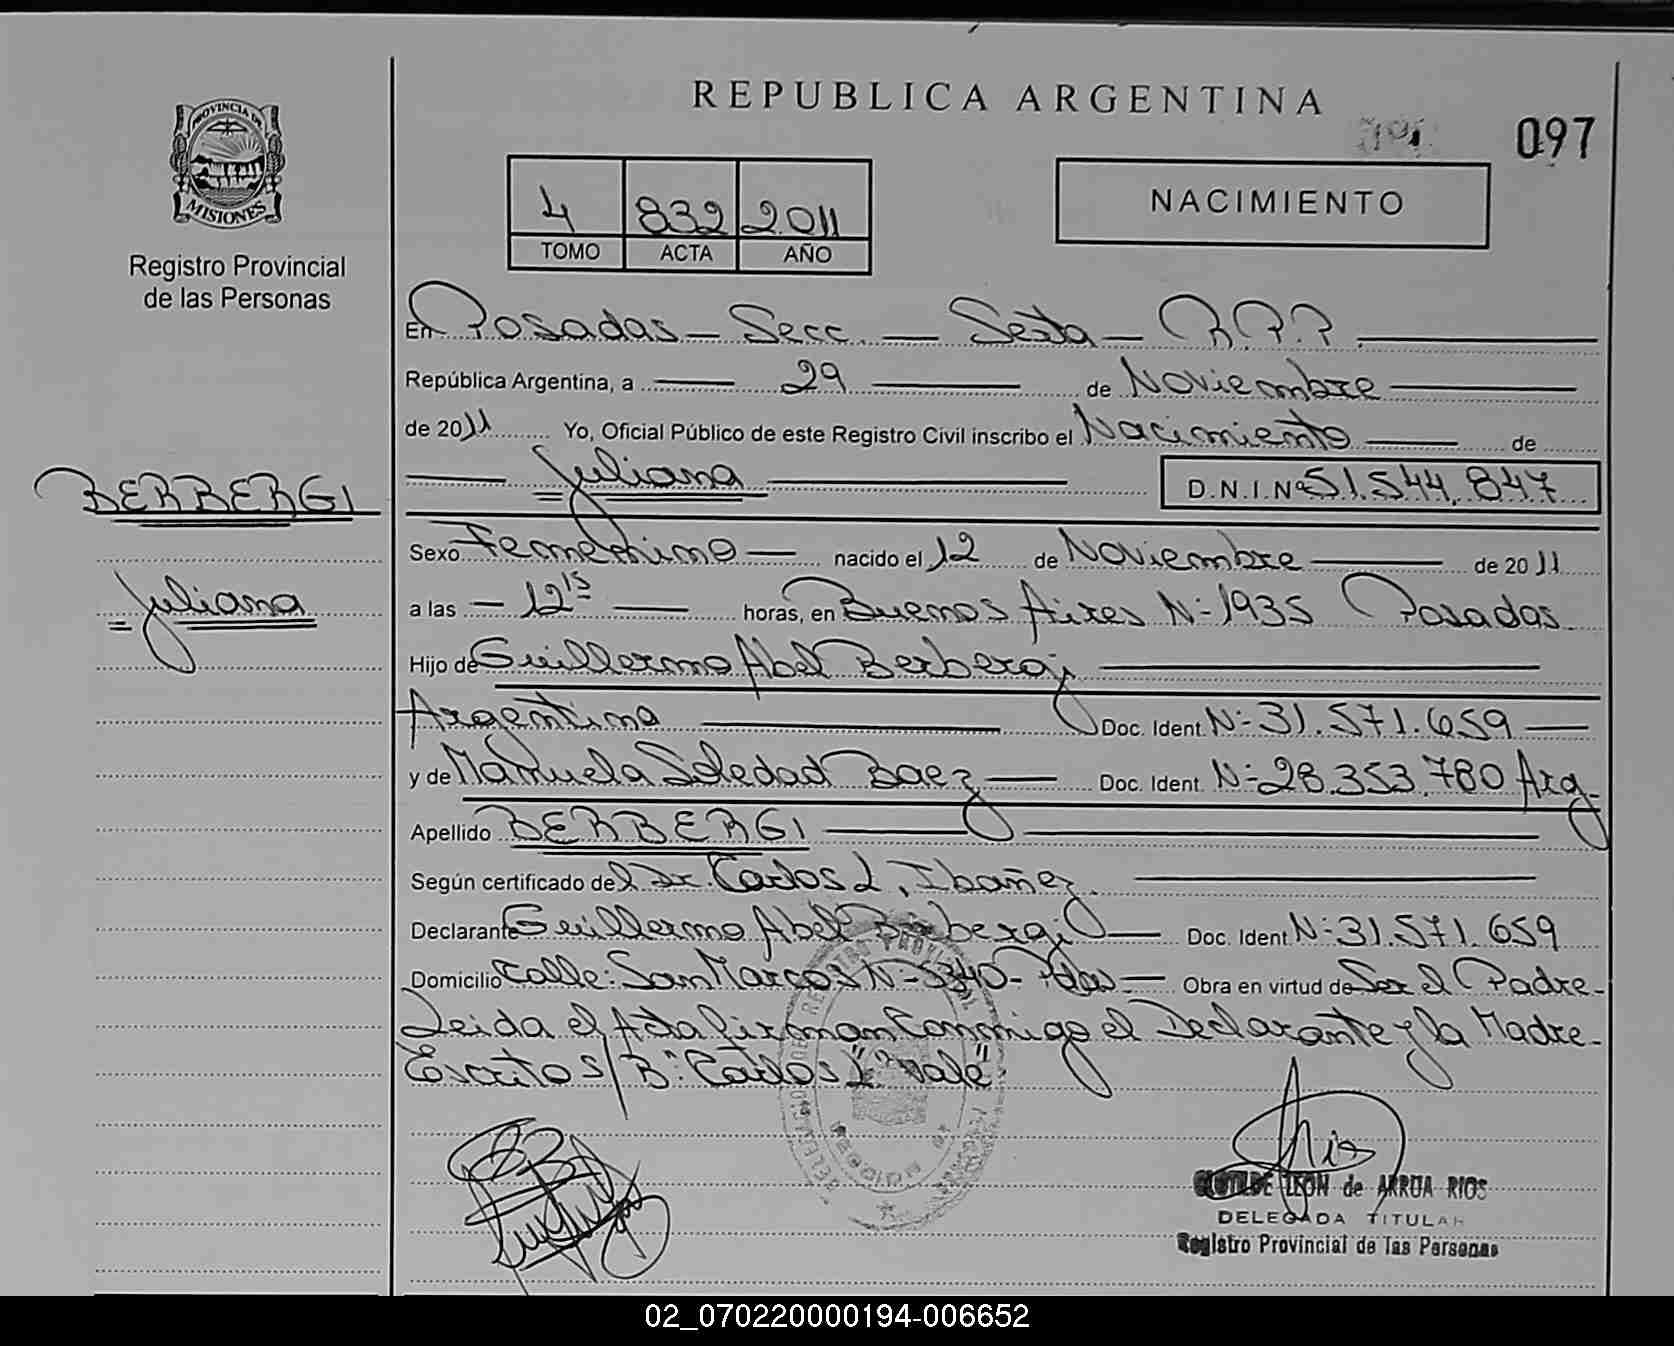 REPUBLICA ARGENTINA
097
PROVINCIA DE
MISIONES
Registro Provincial
de las Personas
4 832 2011
TOMO ACTA AÑO
NACIMIENTO
En Posadas - Secc. - Sexta - R.P.P.
República Argentina, a 29 de Noviembre
de 2011 Yo, Oficial Público de este Registro Civil inscribo el Nacimiento de
Juliana D.N.I.Nº 51.544.847
BERBERGI
Sexo Femenino nacido el 12 de Noviembre de 2011
Juliana
a las - 12 15 horas, en Buenos Aires Nº 1935 Posadas
Hijo de Guillermo Abel Berbergi
Argentino Doc. Ident. Nº 31.571.659
y de Manuela Soledad Baez Doc. Ident. Nº 28.353.780 Arg.
Apellido BERBERGI
Según certificado del Dr. Carlos L. Ibañez
Declarante Guillermo Abel Berbergi Doc. Ident. Nº 31.571.659
Domicilio Calle: San Marcos Nº 5340 - Pdas Obra en virtud de Ser el Padre-
Leida el Acta firman Conmigo el Declarante y la Madre-
Escritos/B: "Carlos L" Vale"
CLOTILDE LEON de ARRUA RIOS
DELEGADA TITULAR
Registro Provincial de las Personas
02_070220000194-006652